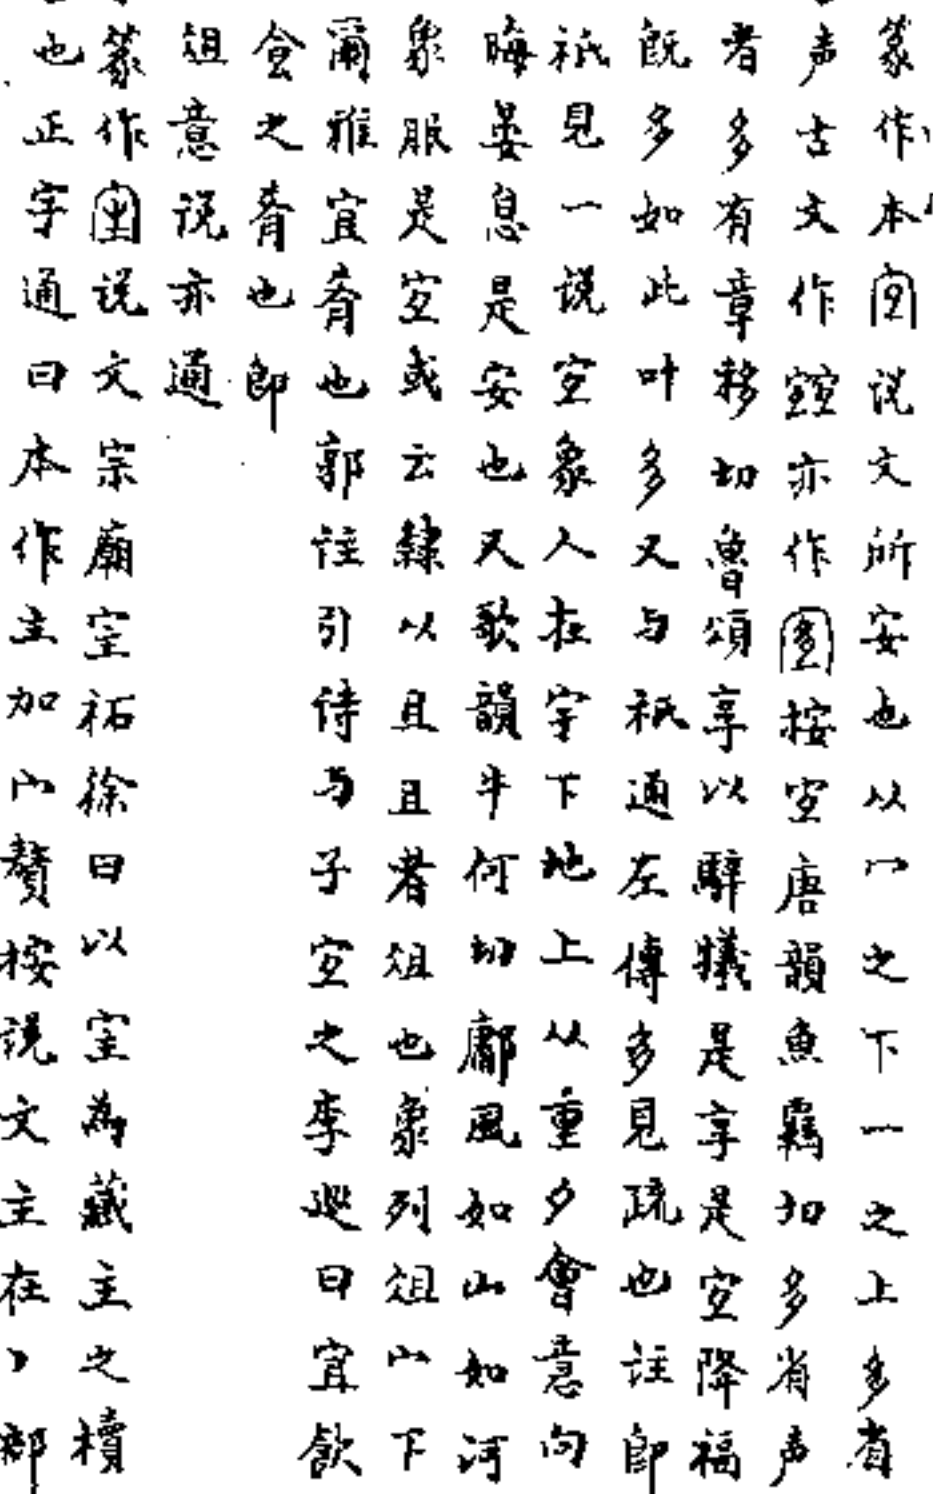 篆作本𡧧说文所安也从宀之下一之上多省
声古文作𡪀亦作𡖈按宜唐韻魚羈切多省声
者多有章移切魯頌享以騂犠是享是宜降福
既多如此叶多又与祇通左傳多見疏也註即
祇見一说宜象人在宇下地上从重夕會意向
晦晏息是安也又歌韻牛何切鄘風如山如河
象服是宜或云隸以且且者俎也象列俎宀下
爾雅宜肴也郭註引诗与子宜之李巡曰宜飲
食之肴也即
俎意说亦通
篆作说文宗廟宔祏徐曰以宔為藏主之櫝
也正字通曰本作主加宀贅按说文主在丶部